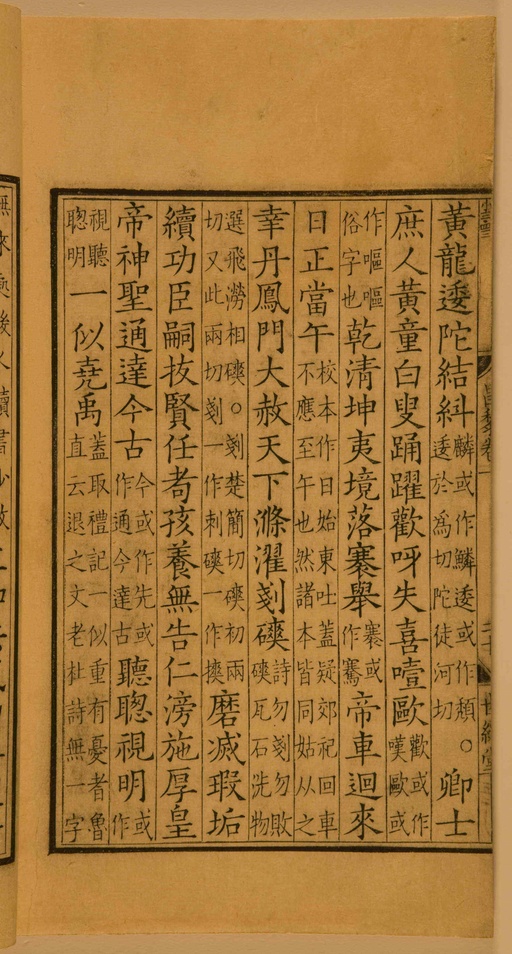 黃龍逶陀結糾麟或作鱗逶或作頹逶於為切陀徒河切。卿士
庶人黃童白叟踊躍歡呀失喜噎歐歡或作嘆歐或
作嘔嘔俗字也乾清坤夷境落褰舉褰或作騫帝車迴來
日正當午校本作日始東吐蓋疑郊祀回車不應至午也然諸本皆同姑從之
幸丹鳳門大赦天下滌濯剗磢詩勿剗勿敗磢瓦石洗物
選飛澇相磢。剗楚簡切磢初兩切又此兩切剗一作刺磢一作摤磨滅瑕垢
續功臣嗣拔賢任耇孩養無告仁滂施厚皇
帝神聖通達今古今或作先或作通今達古聽聰視明或作
視聽聰明一似堯禹蓋取禮記一似重有憂者魯直云退之文老杜詩無一字